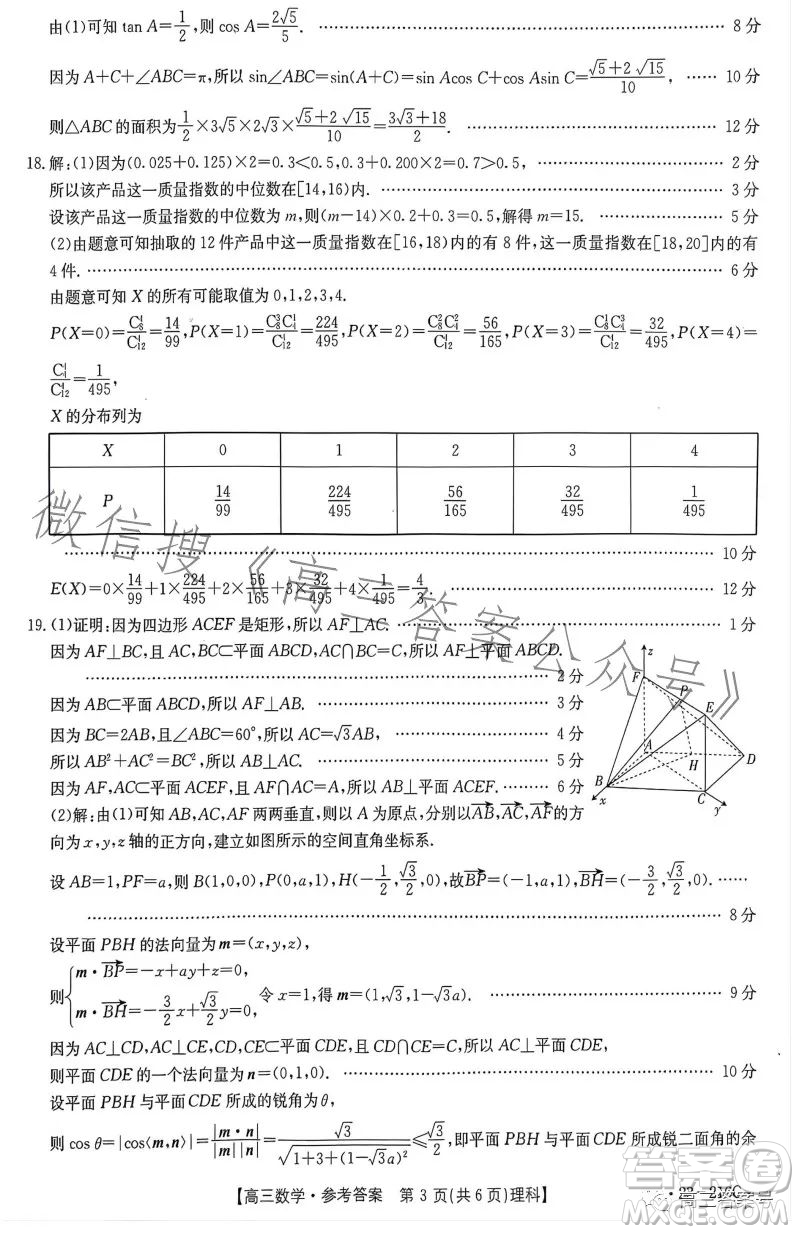 由(1)可知 tan A=1/2,则 cos A=2√5/5. …… 8 分
因为 A+C+∠ABC=π,所以 sin∠ABC=sin(A+C)=sin Acos C+cos Asin C=(√5+2√15)/10, …… 10 分
则△ABC 的面积为1/2×3√5×2√3×(√5+2√15)/10=(3√3+18)/2. …… 12 分
18.解:(1)因为(0.025+0.125)×2=0.3<0.5,0.3+0.200×2=0.7>0.5, …… 2 分
所以该产品这一质量指数的中位数在[14,16)内. …… 3 分
设该产品这一质量指数的中位数为 m,则(m-14)×0.2+0.3=0.5,解得 m=15. …… 5 分
(2)由题意可知抽取的 12 件产品中这一质量指数在[16,18)内的有 8 件,这一质量指数在[18,20]内的有
4 件. …… 6 分
由题意可知 X 的所有可能取值为 0,1,2,3,4.
P(X=0)= =14/99,P(X=1)= =224/495,P(X=2)= =56/165,P(X=3)= =32/495,P(X=4)=
=1/495,
X 的分布列为
X 0 1 2 3 4
P 14/99 224/495 56/165 32/495 1/495
…… 10 分
E(X)=0×14/99+1×224/495+2×56/165+3×32/495+4×1/495=4/3. …… 12 分
19.(1)证明:因为四边形 ACEF 是矩形,所以 AF⊥AC. …… 1 分
因为 AF⊥BC,且 AC,BC⊂平面 ABCD,AC∩BC=C,所以 AF⊥平面 ABCD.
…… 2 分
因为 AB⊂平面 ABCD,所以 AF⊥AB. …… 3 分
因为 BC=2AB,且∠ABC=60°,所以 AC=√3AB, …… 4 分
所以 AB²+AC²=BC²,所以 AB⊥AC. …… 5 分
因为 AF,AC⊂平面 ACEF,且 AF∩AC=A,所以 AB⊥平面 ACEF. …… 6 分
z
F
P
E
A
H
D
B
x
C
y
(2)解:由(1)可知 AB,AC,AF 两两垂直,则以 A 为原点,分别以AB,AC,AF的方
向为 x,y,z 轴的正方向,建立如图所示的空间直角坐标系.
设 AB=1,PF=a,则 B(1,0,0),P(0,a,1),H(-1/2,√3/2,0),故BP=(-1,a,1),BH=(-3/2,√3/2,0). ……
…… 8 分
设平面 PBH 的法向量为 m=(x,y,z),
则{m·BP=-x+ay+z=0, m·BH=-3/2x+√3/2y=0, 令 x=1,得 m=(1,√3,1-√3a). …… 9 分
因为 AC⊥CD,AC⊥CE,CD,CE⊂平面 CDE,且 CD∩CE=C,所以 AC⊥平面 CDE,
则平面 CDE 的一个法向量为 n=(0,1,0). …… 10 分
设平面 PBH 与平面 CDE 所成的锐角为 θ,
则 cos θ=|cos⟨m,n⟩|=|m·n|/(|m||n|)=√3/√(1+3+(1-√3a)²)≤√3/2,即平面 PBH 与平面 CDE 所成锐二面角的余
【高三数学·参考答案 第 3 页(共 6 页)理科】
微信搜《高三答案公众号》
答案圈
高三答案号